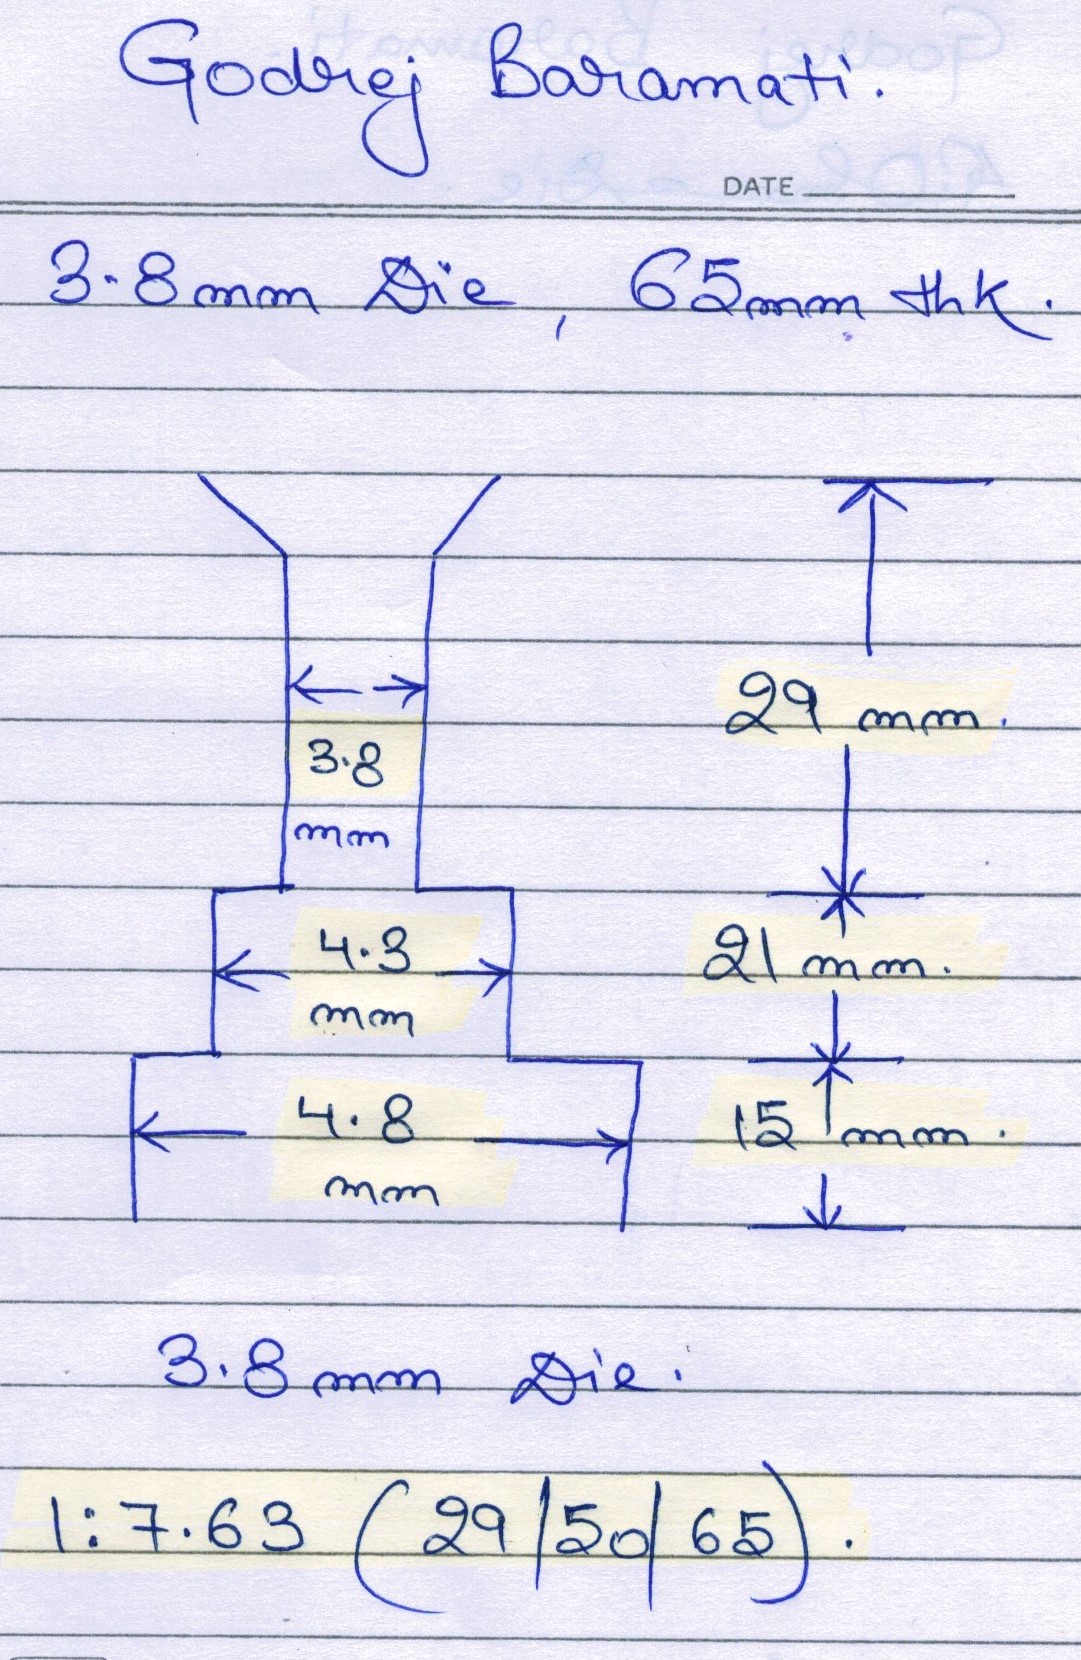 Godrej Baramati.
DATE
3.8mm Die, 65mm thk.
29 mm.
3.8
mm
4.3
mm
21 mm.
4.8
mm
15 mm.
3.8mm Die.
1:7.63 (29/50/65).